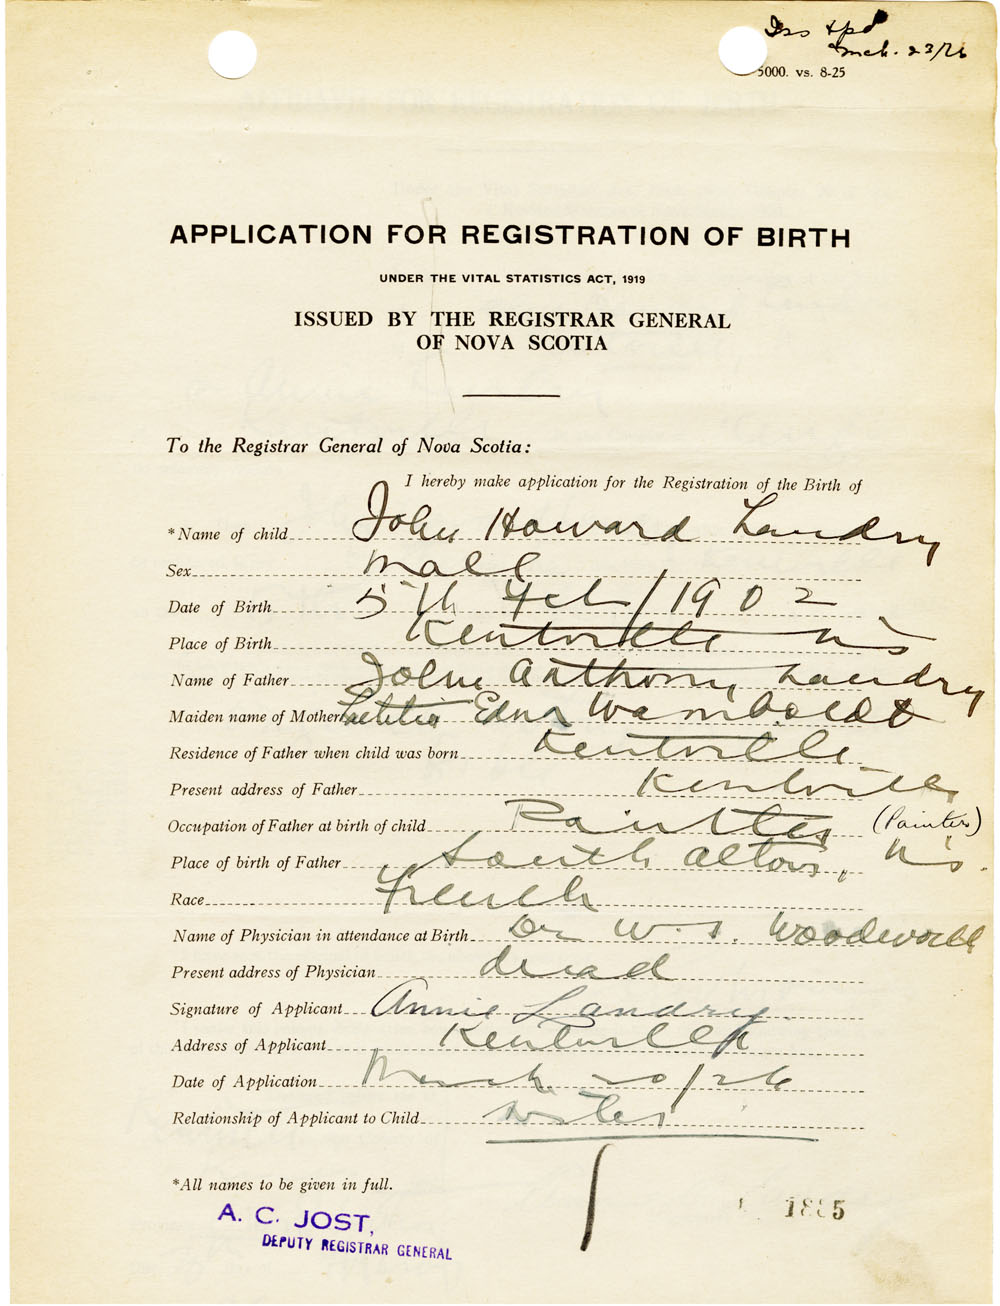 Iss + pd
Mch. 23/26
5000. vs. 8-25
APPLICATION FOR REGISTRATION OF BIRTH
UNDER THE VITAL STATISTICS ACT, 1919
ISSUED BY THE REGISTRAR GENERAL
OF NOVA SCOTIA
To the Registrar General of Nova Scotia:
I hereby make application for the Registration of the Birth of
*Name of child John Howard Landry
Sex Male
Date of Birth 5th Feb/1902
Place of Birth Kentville N S
Name of Father John Anthony Landry
Maiden name of Mother Letitia Edna Wamboldt
Residence of Father when child was born Kentville
Present address of Father Kentville
Occupation of Father at birth of child Painter (Painter)
Place of birth of Father South Alton, N S.
Race French
Name of Physician in attendance at Birth Dr W. S. Woodworth
Present address of Physician dead
Signature of Applicant Annie Landry.
Address of Applicant Kentville
Date of Application March 20/26
Relationship of Applicant to Child sister
*All names to be given in full.
A. C. JOST,
DEPUTY REGISTRAR GENERAL